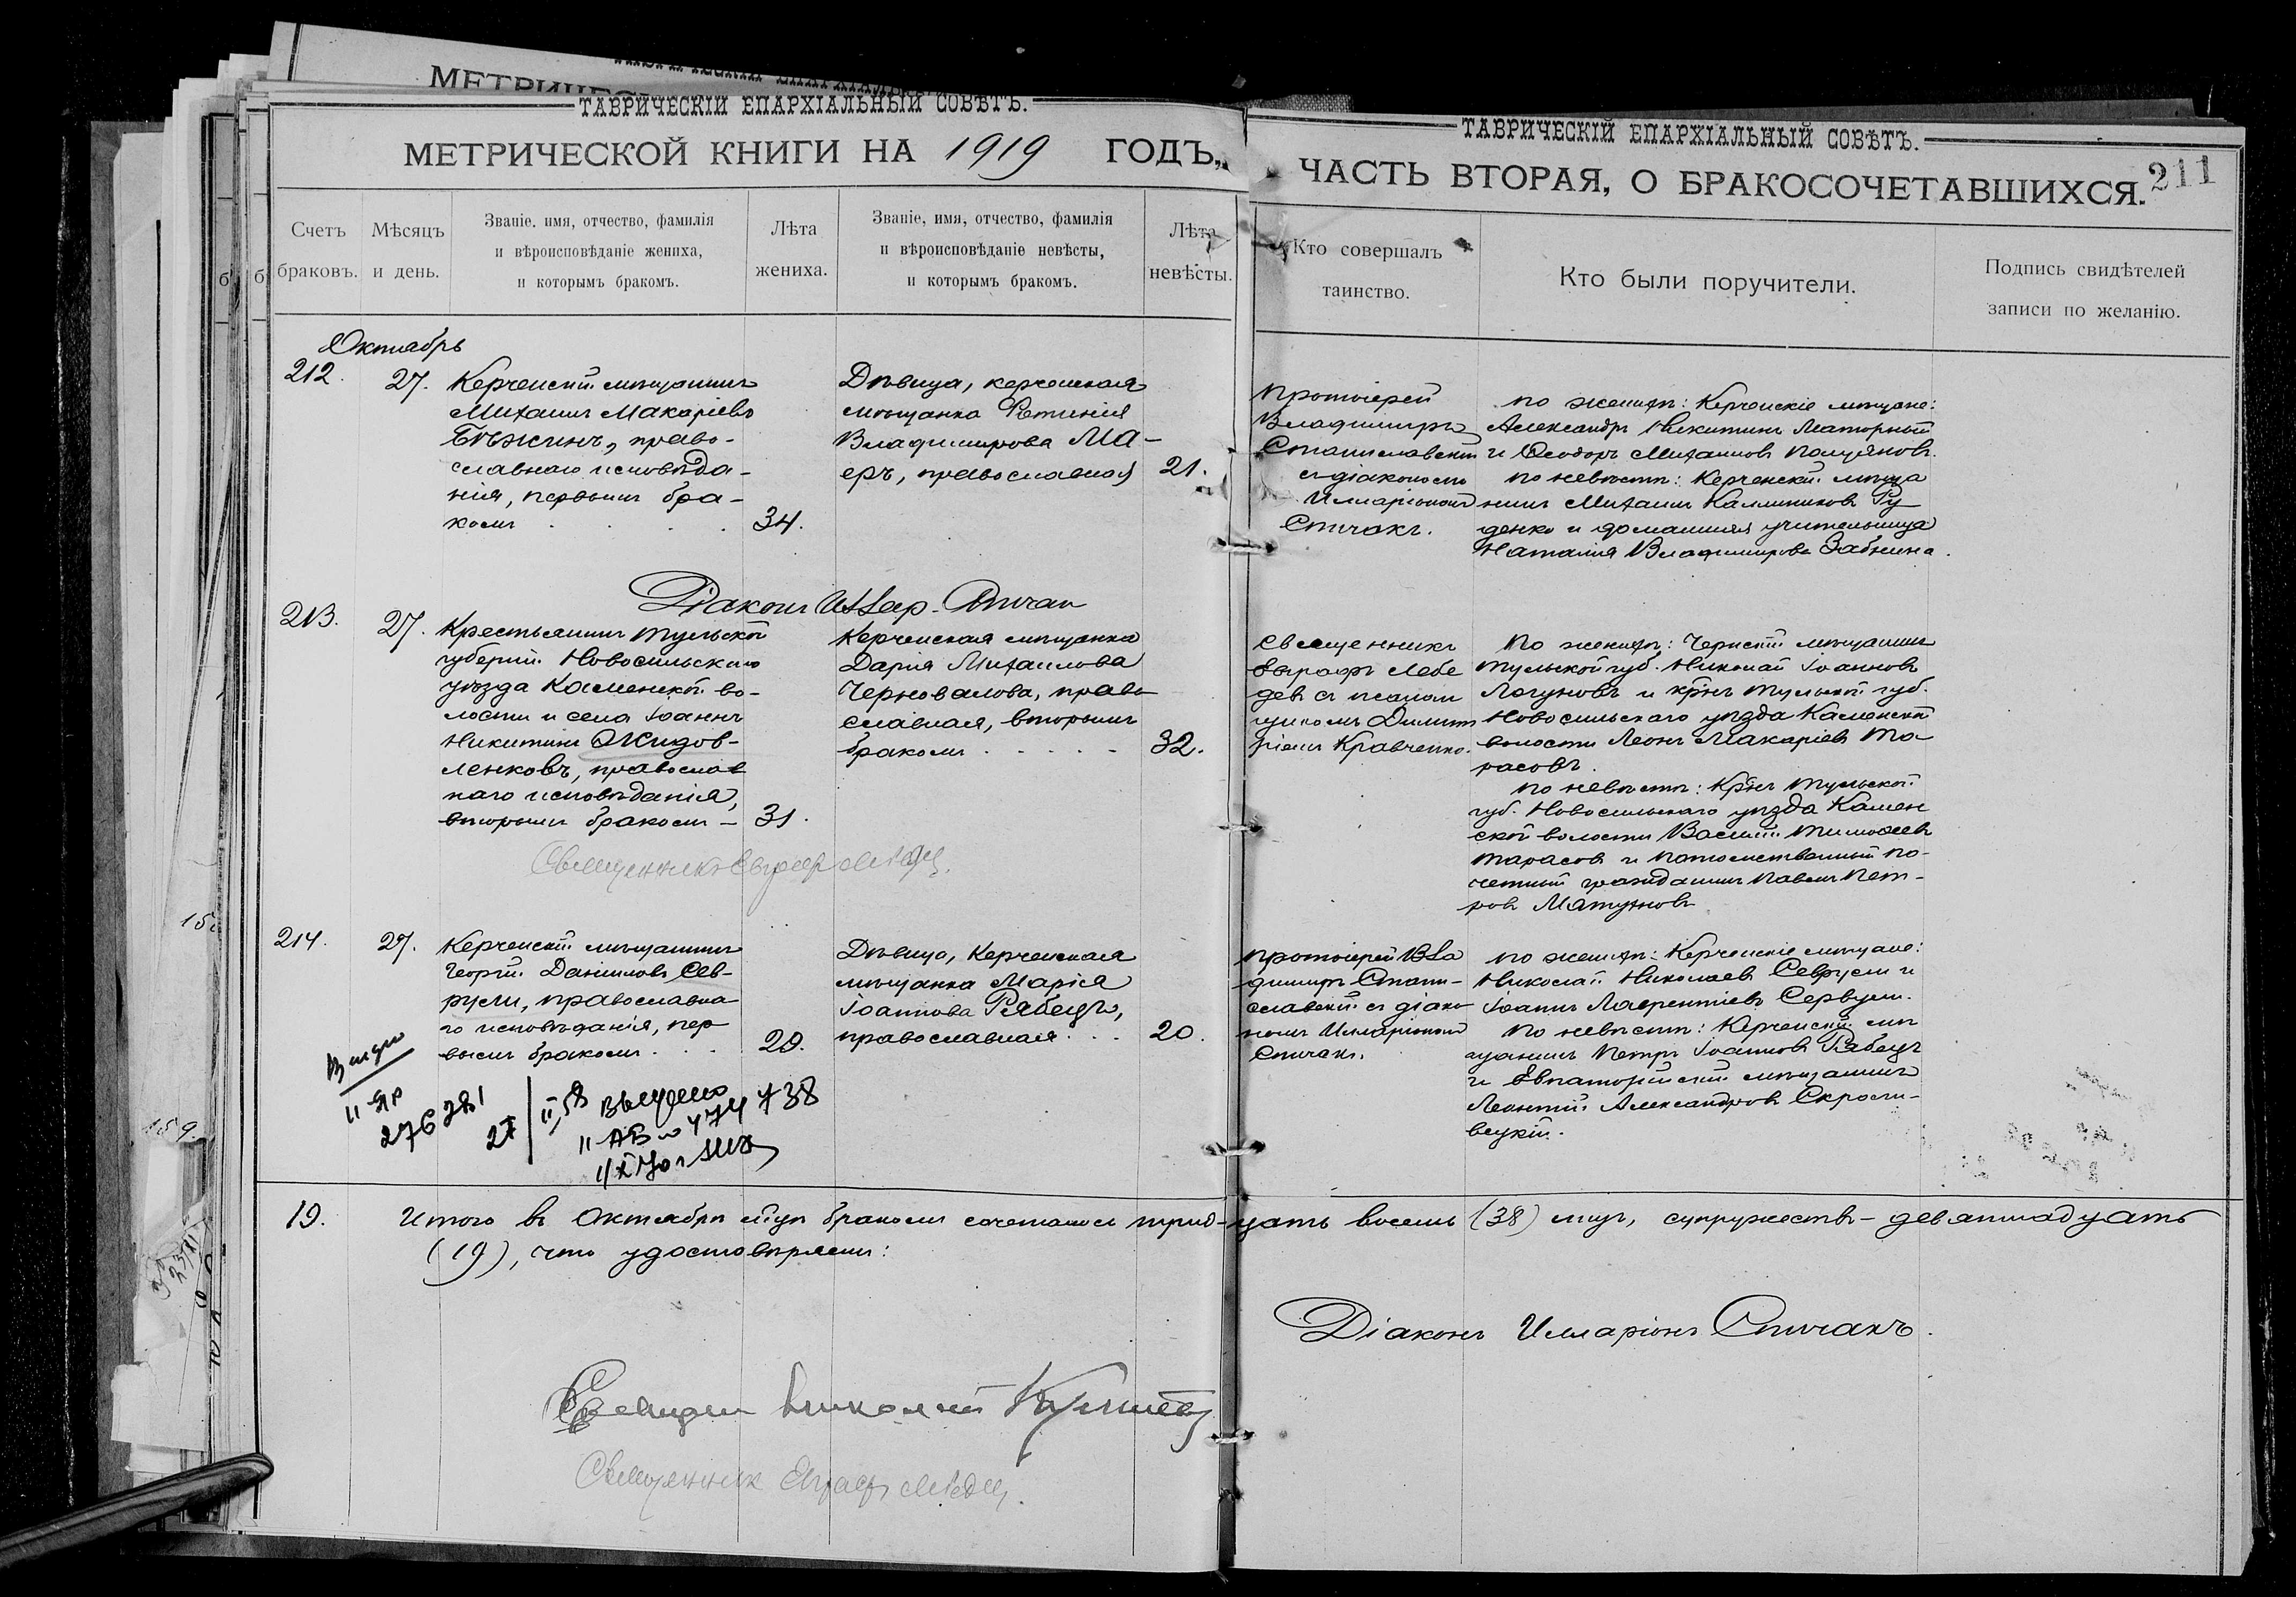 ТАВРИЧЕСКІЙ ЕПАРХІАЛЬНЫЙ СОВѢТЪ.
МЕТРИЧЕСКОЙ КНИГИ НА 1919 ГОДЪ,
Счетъ браковъ.
Мѣсяцъ и день.
Званіе, имя, отчество, фамилія
и вѣроисповѣданіе жениха,
и которымъ бракомъ.
Лѣта жениха.
Званіе, имя, отчество, фамилія
и вѣроисповѣданіе невѣсты,
и которымъ бракомъ.
Лѣта невѣсты.
ТАВРИЧЕСКІЙ ЕПАРХІАЛЬНЫЙ СОВѢТЪ.
ЧАСТЬ ВТОРАЯ, О БРАКОСОЧЕТАВШИХСЯ.
211
Кто совершалъ
таинство.
Кто были поручители.
Подпись свидѣтелей
записи по желанію.
Октябрь
212.
27.
Керченскій мѣщанинъ
Михаилъ Макаріевъ
Бѣжинъ, право-
славнаго исповѣда-
нія, первымъ бра-
комъ
34.
Дѣвица, керченская
мѣщанка Фотинія
Владимирова Ма-
еръ, православная
21.
Протоіерей
Владимиръ
Станиславскій
съ діакономъ
Илларіономъ
Спичакъ.
по женихѣ: Керченскіе мѣщане:
Александръ Никитинъ Маторный
и Ѳеодоръ Михаиловъ
по невѣстѣ: Керченскій мѣща
нинъ Михаилъ Каллиниковъ Ру
денко и домашняя учительница
Наталія Владимирова Забнина.
Діаконъ Иллар. Спичак
213.
27.
Крестьянинъ Тульской
губерніи Новосильскаго
уѣзда Каменской во-
лости и села Іоаннъ
Никитинъ Жидов-
ленковъ, православ
наго исповѣданія,
вторымъ бракомъ –
31.
Керченская мѣщанка
Дарія Михаилова
Черновалова, право
славная, вторымъ
бракомъ
32.
Священникъ
Евграфъ Лебе
девъ съ псалом
щикомъ Димит
ріемъ Кравченко.
По женихѣ: Чернскій мѣщанинъ
Тульской губ. Николай Іоанновъ
Логуновъ и кр-нъ Тульской губ.
Новосильскаго уѣзда Каменской
волости Леонъ Макаріевъ Та-
расовъ.
По невѣстѣ: Кр-нъ Тульской
губ. Новосильскаго уѣзда Камен
ской волости Василій Тимоѳеевъ
Тарасовъ и Потомственный по-
четный гражданинъ Павелъ Пет-
ровъ Матуховъ
Священникъ Евграф
214.
27.
Керченскій мѣщанинъ
Георгій Даніиловъ Сев-
рули, православна
го исповѣданія, пер
вымъ бракомъ
29.
Дѣвица, Керченская
мѣщанка Марія
Іоаннова Рябецъ,
православная
20.
Протоіерей Вла
димиръ Стани-
славскій съ діако
номъ Илларіономъ
Спичакъ.
по женихѣ: Керченскіе мѣщане:
Николай Николаевъ Севрули и
Іоаннъ Лаврентіевъ Сервули.
По невѣстѣ: Керченскій мѣ
щанинъ Петръ Іоанновъ Рябецъ
и Евпаторійскій мѣщанинъ
Леонтій Александровъ Скроли-
вецкій.
II ЯР
276281
Выдано
II АВ № 474738
19.
Итого въ Октябрѣ м-цѣ бракомъ сочеталось тридцать восемь (38) лицъ, супружествъ – девятнадцать
(19), что удостовѣряемъ:
Діаконъ Илларіонъ Спичакъ.
Священ Николай
Священник Евграфъ